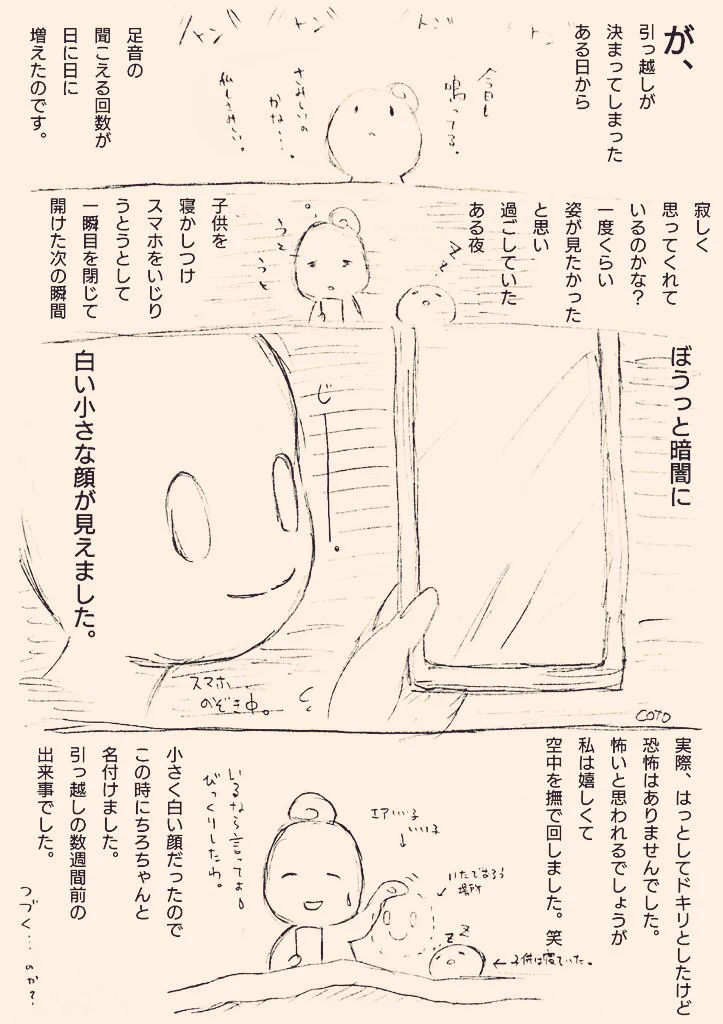 が、
引っ越しが
決まってしまった
ある日から
トン
トン
トン
トン
今日も
鳴ってる。
さみしいの
かな…。
私もさみしい。
足音の
聞こえる回数が
日に日に
増えたのです。
寂しく
思ってくれて
いるのかな?
一度くらい
姿が見たかった
と思い
過ごしていた
ある夜
zzz
うと
うと
子供を
寝かしつけ
スマホをいじり
うとうとして
一瞬目を閉じて
開けた次の瞬間
ぼうっと暗闇に
じーーー。
白い小さな顔が見えました。
スマホ
のぞき中。
COTO
実際、はっとしてドキリとしたけど
恐怖はありませんでした。
怖いと思われるでしょうが
私は嬉しくて
空中を撫で回しました。笑
エアいい子
いい子
いたであろう
場所
zz
子供は寝ていた。
いるなら言ってよ。
びっくりしたわ。
小さく白い顔だったので
この時にちろちゃんと
名付けました。
引っ越しの数週間前の
出来事でした。
つづく…のか?